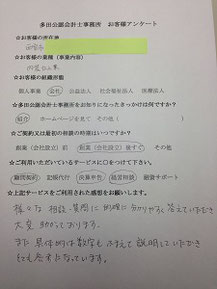 多田公認会計士事務所　お客様アンケート
☆お客様の所在地
☆お客様の業種（事業内容）
内装工事
☆お客様の組織形態
個人事業　会社　公益法人　社会福祉法人　医療法人
☆多田公認会計士事務所をお知りになったきっかけは何ですか？
紹介　ホームページを見て　その他（　　　）
☆ご契約又は最初の相談の時期はいつですか？
創業（会社設立）前　創業（会社設立）後すぐ　その他（
☆ご利用いただいているサービスに○をつけて下さい。
顧問契約　記帳代行　決算申告　経営相談　融資サポート
☆上記サービスをご利用された感想をお願いします。
様々な相談・質問に的確に分かりやすく答えていただき
大変助かっております。
また具体的な数字もふまえて説明していただき
とても参考となっています。